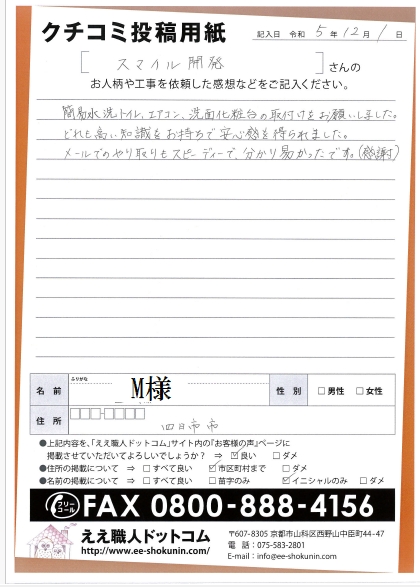 クチコミ投稿用紙
記入日 令和 5 年 12 月 1 日
[ スマイル開発 ] さんの
お人柄や工事を依頼した感想などをご記入ください。
簡易水洗トイレ、エアコン、洗面化粧台の取付けをお願いしました。
どれも高い知識をお持ちで安心感を得られました。
メールでのやり取りもスピーディーで、分かり易かったです。(感謝)
ふりがな
名前 M様 性別 □男性 □女性
住所 四日市市
●上記内容を、「ええ職人ドットコム」サイト内の『お客様の声』ページに
掲載させていただいてよろしいでしょうか? ⇒ ☑良い □ダメ
●住所の掲載について ⇒ □すべて良い ☑市区町村まで □ダメ
●名前の掲載について ⇒ □すべて良い □苗字のみ ☑イニシャルのみ □ダメ
フリーコール FAX 0800-888-4156
ええ職人ドットコム
http://www.ee-shokunin.com/
〒607-8305 京都市山科区西野山中臣町44-47
電話:075-583-2801
E-mail:info@ee-shokunin.com